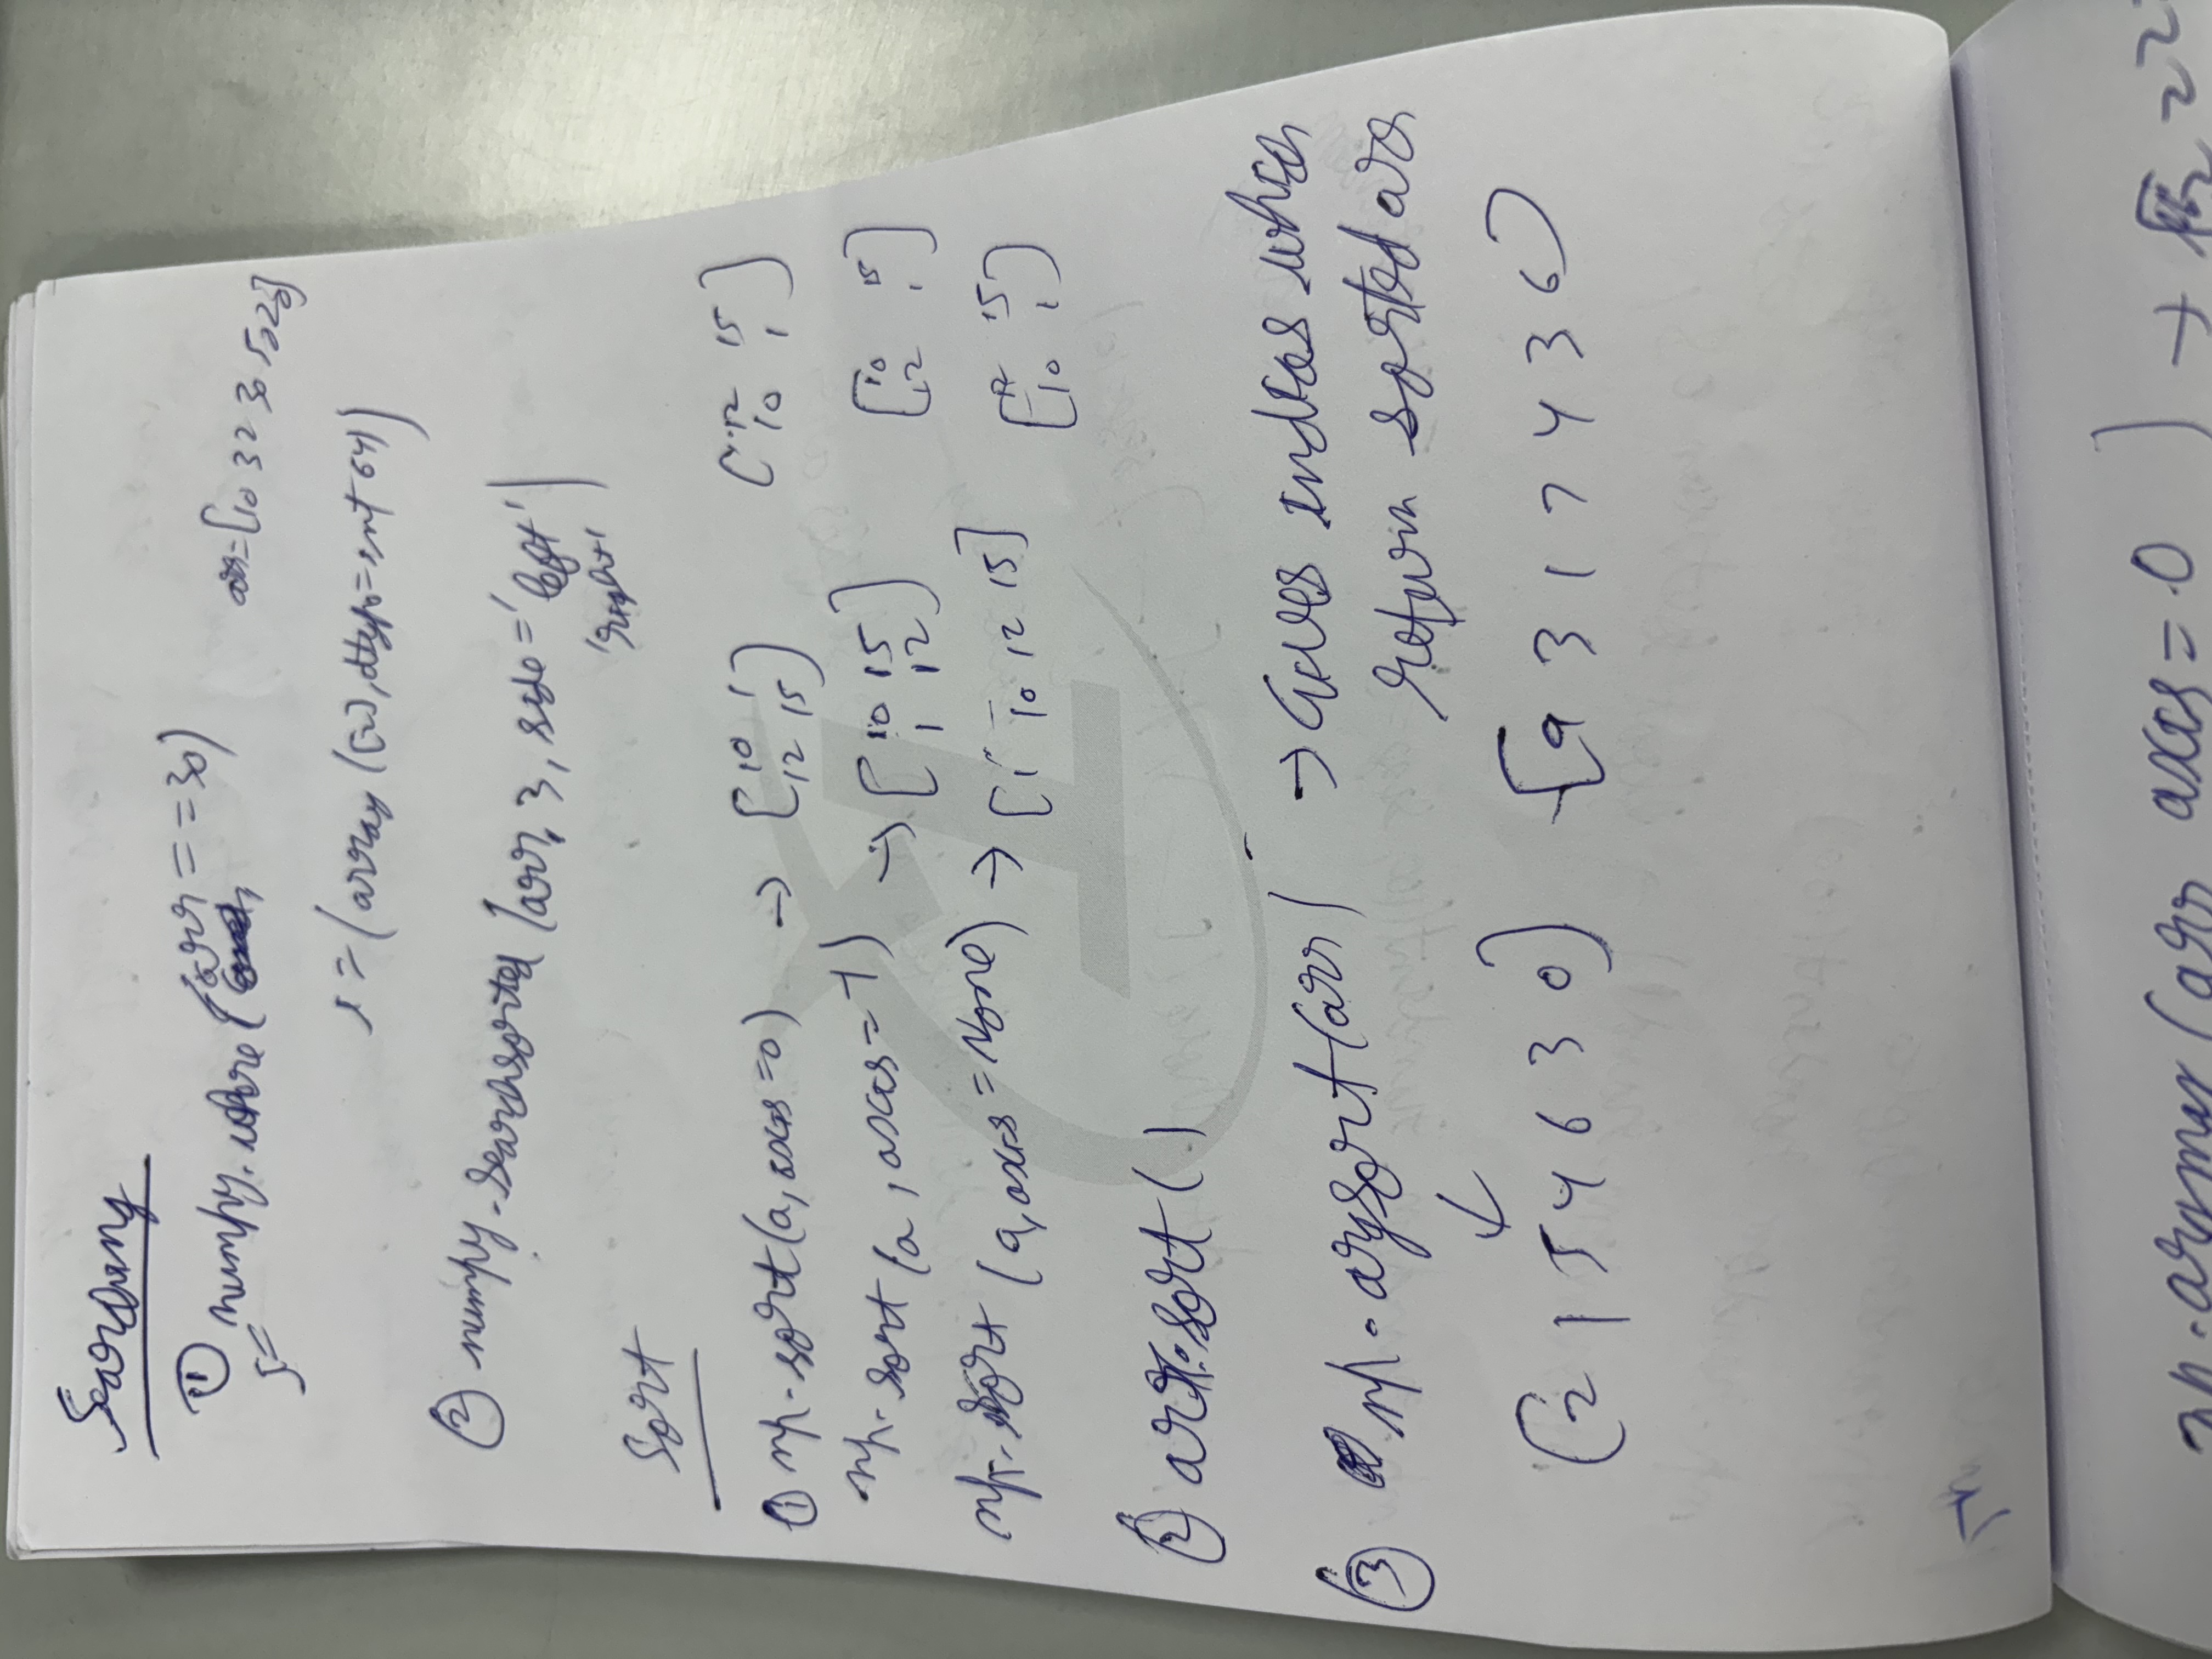 Searching
① numpy.where (arr==30)
arr=[10 32 30 50 20]
i = (array ([2], dtype=int 64))
② numpy.searchsorted (arr, 3, side='left'
'right' )
Sort
① np.sort(a, axis=0) → [10 1
12 15] [12 15
10 1]
np.sort (a, axis=-1) → [10 15
1 12] [10 15
12 1]
np.sort (a, axis=None) → [1 10 12 15] [12 15
10 1]
② arr.sort()
③ np.argsort(arr) → Gives indices which
return sorted arr
↓
[2 1 5 4 6 3 0] [9 3 1 7 4 3 6]
(arr axis=0 ) →